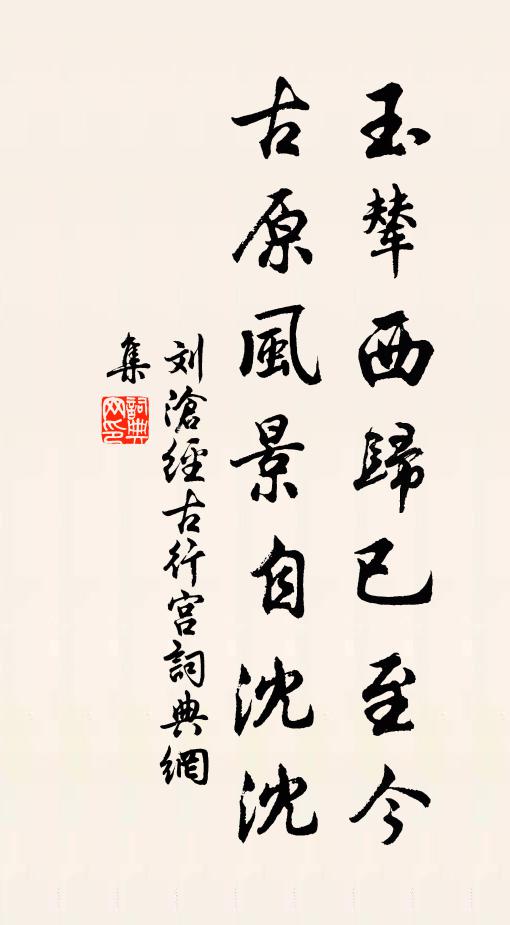 玉輦西歸已至今
古原風景自沈沈
刘滄經古行宫詞典網
集
詞典
网印